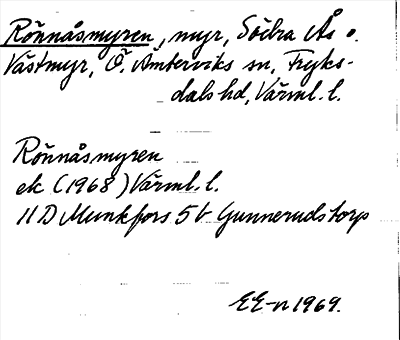 Rönnåsmyren, myr, Södra Ås o.
Västmyr, Ö. Ämterviks sn, Fryks-
dals hd, Värml. l.
Rönnåsmyren
ek (1968) Värml. l.
11 D Munkfors 5 b Gunnerudstorp
EE-n 1969.